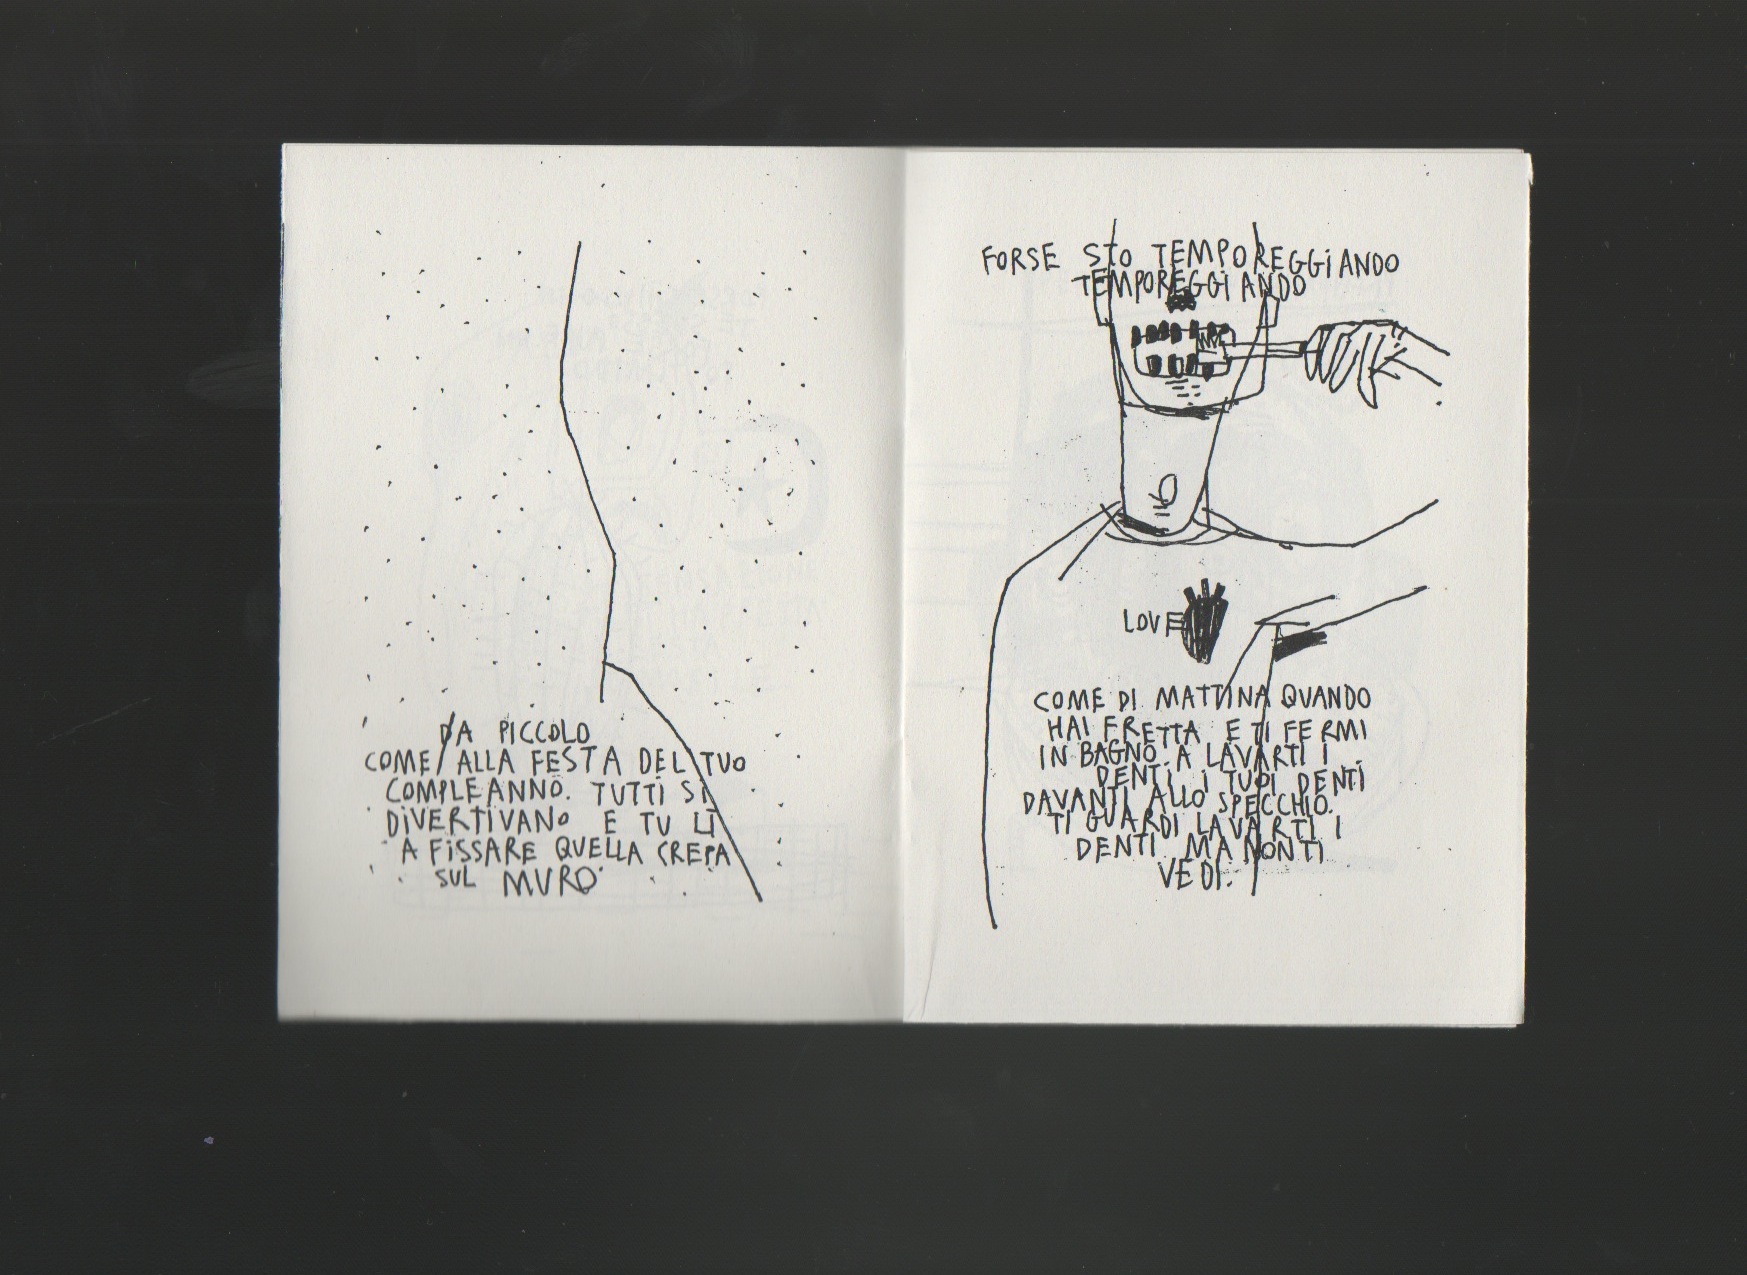 DA PICCOLO
COME/ALLA FESTA DEL TUO
COMPLEANNO. TUTTI SI
DIVERTIVANO E TU LÌ
A FISSARE QUELLA CREPA
SUL MURO
FORSE STO TEMPOREGGIANDO
TEMPOREGGIANDO
LOVE
COME DI MATTINA QUANDO
HAI FRETTA E TI FERMI
IN BAGNO A LAVARTI I
DENTI. I TUOI DENTI
DAVANTI ALLO SPECCHIO.
TI GUARDI LAVARTI I
DENTI MA NON TI
VEDI.